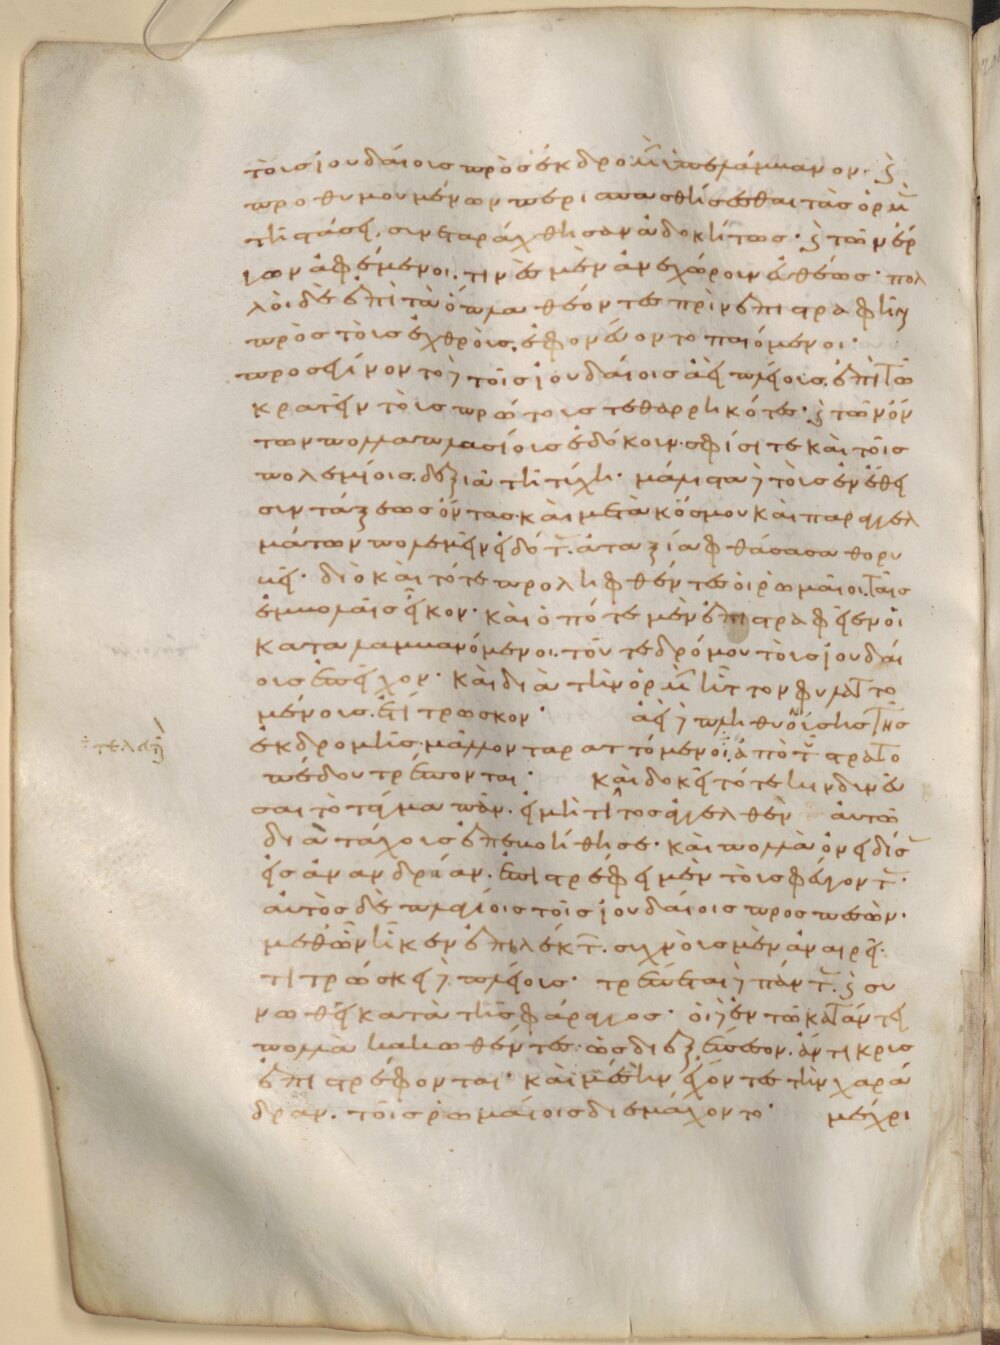 τοὺς ἰουδαίους πρὸς ἐκδρομὴν ὑπελάμβανον· καὶ
προθυμουμένων περισπασθήσεσθαι τὰς ὁρμὰς
τῆ στάσει, συνεταράχθησαν ἀδοκήτως· καὶ τῶν ἔρ
γων ἀφέμενοι. τινὲς μὲν ἀνεχώρουν εὐθέως· πολ
λοὶ δὲ ἐπὶ τὰ ὅπλα θέοντες πρὶν ἐπιστραφῆναι
πρὸς τοὺς ἐχθροὺς, ἐφονεύοντο παιόμενοι·
προσεγίνοντο δὲ τοῖς ἰουδαίοις ἀεὶ πλείους. ἐπὶ τῶ
κρατεῖν τοὺς πρώτους τεθαρρηκότες· καὶ τῶν ὄν
των πολλαπλασίους ἐδόκουν. σφίσι τε καὶ τοῖς
πολεμίοις. δεξιᾶ τῆ τύχη· μάλιστα δὲ τοὺς ἐν ἔθει
συντάξεως ὄντας· καὶ μετὰ κόσμου καὶ παραγγελ
μάτων πολεμεῖν εἰδότας. ἀταξία φθάσασα θορυ
βεῖ· διὸ καὶ τότε προληφθέντες οἱ ῥωμαῖοι. ταῖς
ἐμβολαῖς εἶκον· καὶ ὁπότε μὲν ἐπιστραφεῖεν οἱ
καταλαμβανόμενοι. τοῦ τε δρόμου τοὺς ἰουδαί
ους ἐπεῖχον· καὶ διὰ τὴν ὁρμὴν ἧττον φυλαττο
μένους. ἐτίτρωσκον· ἀεὶ δὲ πληθυούσης τῆς
ἐκδρομῆς. μᾶλλον ταραττόμενοι, ἀπὸ τοῦ στρατο
τελευταῖον
πέδου τρέπονται· καὶ δοκεῖ τότε κἂν κινδυνεῦ
σαι τὸ τάγμα πᾶν. εἰ μὴ τίτος ἀγγελθὲν αὐτῶ
διὰ τάχους ἐπεβοήθησε· καὶ πολλὰ ὀνειδίσας
εἰς ἀνανδρίαν. ἐπιστρέφει μὲν τοὺς φεύγοντας·
αὐτὸς δὲ πλαγίοις τοῖς ἰουδαίοις προσπεσὼν·
μεθ' ὧν ἧκεν ἐπιλέκτων. συχνοὺς μὲν ἀναιρεῖ·
τιτρώσκει δὲ πλείους· τρέπεται δὲ πάντας. καὶ συ
νωθεῖ κατὰ τῆς φάραγγος· οἱ δ' ἐν τῶ κατάντει
πολλὰ κακωθέντες. ὡς διεξέπεσον. ἄντικρυς
ἐπιστρέφονται· καὶ μέσην ἔχοντες τὴν χαρά
δραν. τοῖς ῥωμαίοις διεμάχοντο· μέχρι